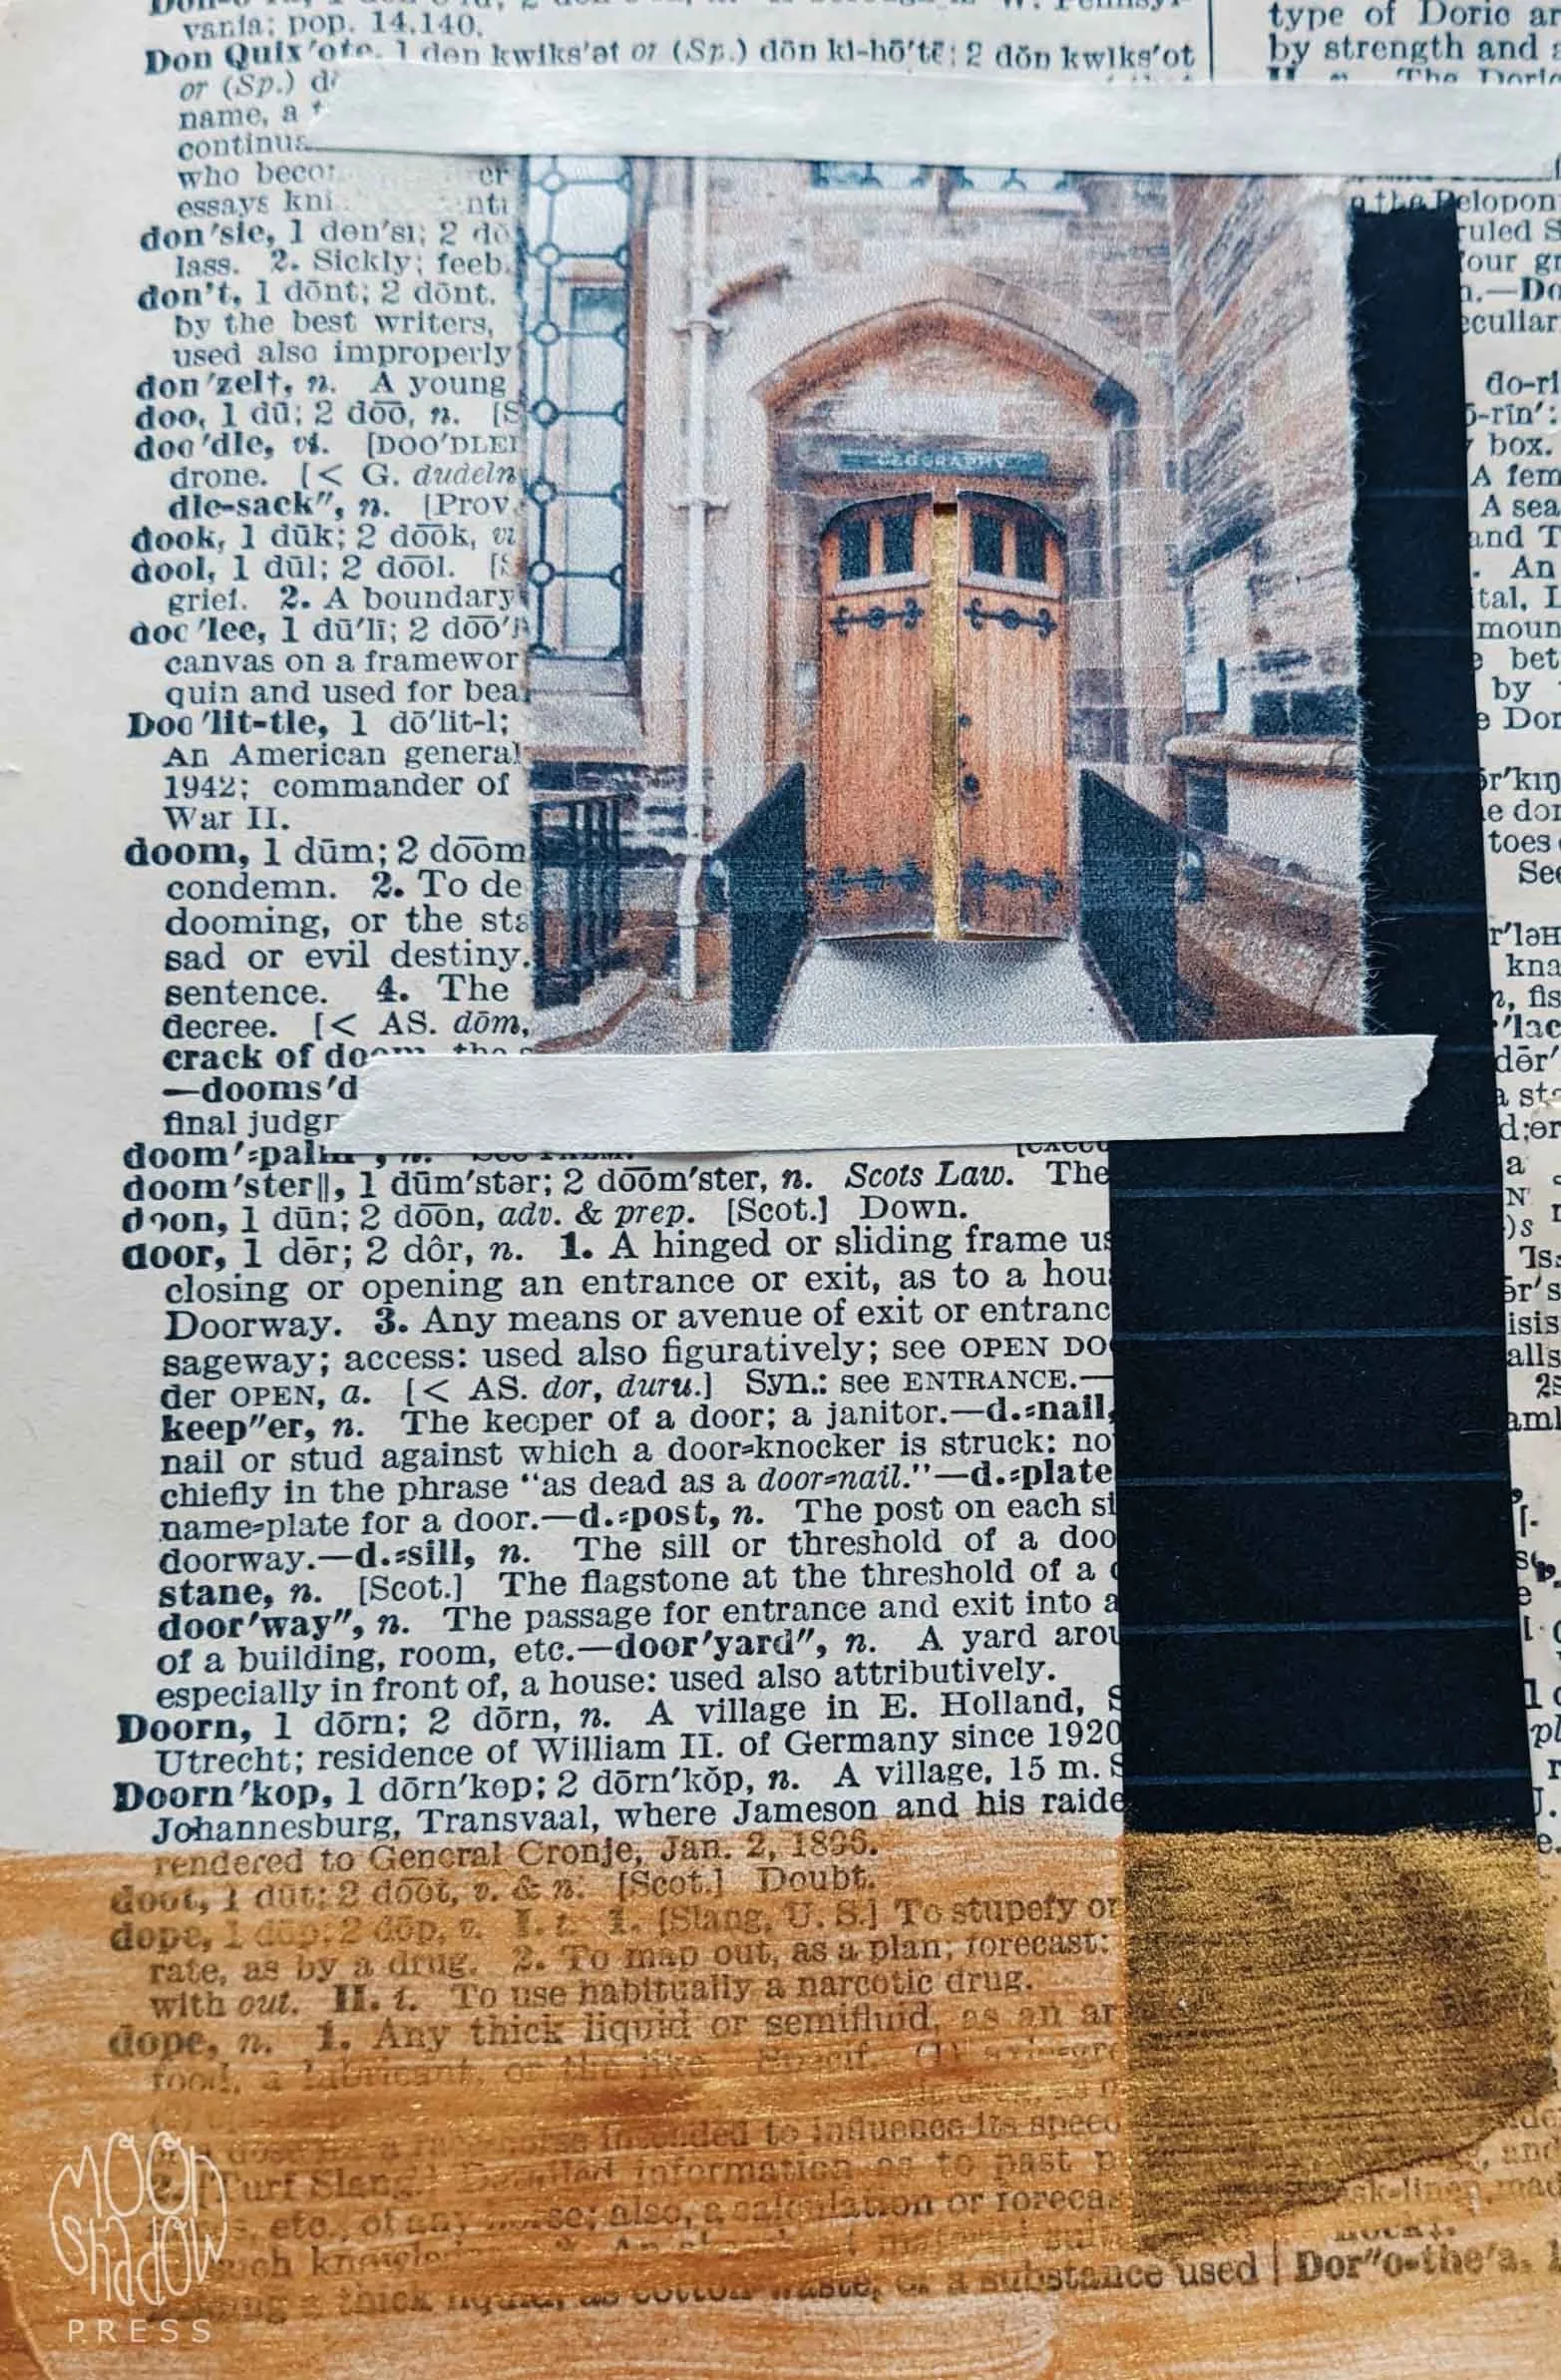 vania; pop. 14,140.
Don Quix′ote, 1 den kwiks′ət or (Sp.) dōn kī-hō′tē; 2 dŏn kwĭks′ot
or (Sp.)
name, a
continu
who becom er
essays kni nti
don′sie, 1 den′sı; 2 do
lass. 2. Sickly; feeb
don't, 1 dōnt; 2 dōnt.
by the best writers,
used also improperly
don′zel†, n. A young
doo, 1 dū; 2 dōō, n. [S
doo′dle, vi. [DOO′DLE
drone. [< G. dudeln
dle-sack″, n. [Prov.
dook, 1 dūk; 2 dōōk,
dool, 1 dūl; 2 dōōl.
grief. 2. A boundary
doo′lee, 1 dū′lī; 2 dōō′
canvas on a framewor
quin and used for bea
Doo′lit-tle, 1 dō′lit-l;
An American general
1942; commander of
War II.
doom, 1 dūm; 2 dōōm
condemn. 2. To de
dooming, or the sta
sad or evil destiny.
sentence. 4. The
decree. [< AS. dōm,
crack of doom, the
—dooms′d
final judgr
doom′=palm
doom′ster‖, 1 dūm′stər; 2 dōōm′ster, n. Scots Law. The
doon, 1 dūn; 2 dōōn, adv. & prep. [Scot.] Down.
door, 1 dōr; 2 dôr, n. 1. A hinged or sliding frame us
closing or opening an entrance or exit, as to a hou
Doorway. 3. Any means or avenue of exit or entranc
sageway; access: used also figuratively; see OPEN DO
der OPEN, a. [< AS. dor, duru.] Syn.: see ENTRANCE.—
keep″er, n. The keeper of a door; a janitor.—d.=nail,
nail or stud against which a door=knocker is struck: no
chiefly in the phrase “as dead as a door=nail.”—d.=plate
name=plate for a door.—d.=post, n. The post on each si
doorway.—d.=sill, n. The sill or threshold of a doo
stane, n. [Scot.] The flagstone at the threshold of a
door′way″, n. The passage for entrance and exit into a
of a building, room, etc.—door′yard″, n. A yard arou
especially in front of, a house: used also attributively.
Doorn, 1 dōrn; 2 dōrn, n. A village in E. Holland, S
Utrecht; residence of William II. of Germany since 1920
Doorn′kop, 1 dōrn′kep; 2 dōrn′kŏp, n. A village, 15 m. S
Johannesburg, Transvaal, where Jameson and his raide
rendered to General Cronje, Jan. 2, 1896.
doot, 1 dūt; 2 dōōt, v. & n. [Scot.] Doubt.
dope, 1 dōp; 2 dōp, v. I. t. 1. [Slang, U. S.] To stupefy or
rate, as by a drug. 2. To map out, as a plan; forecast:
with out. II. i. To use habitually a narcotic drug.
dope, n. 1. Any thick liquid or semifluid, as an ar
food, a lubricant, or the like. Specif.
intended to influence its speed
2. [Turf Slang.] Detailed information as to past p
etc., of any horse; also, a calculation or forecas
such
a thick liquid, as cotton waste, or a substance used
GEOGRAPHY
type of Doric ar
by strength and
II. n. The Doric
the Pelopon
ruled S
our gr
n.—Do
eculiar
do-ri
ō-rīn′:
box.
A fem
A sea
and T
An
ital,
moun
bet
by
Dor
toes
See
kna
n, fis
a
isis
alls
Dor″o-the′a,
MOON
SHADOW
PRESS